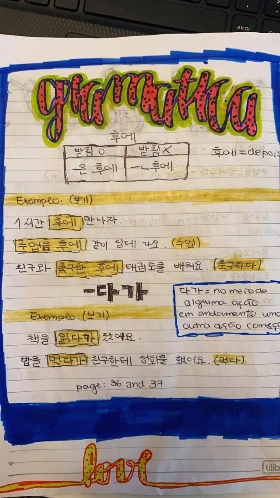 gramatica
후에
받침 O 받침 X
은 후에 -ㄴ 후에
후에=depois
Exemplo: (보기)
1시간 후에 만나자.
수업을 후에 같이 집에 가요. (수업)
친구와 축구한 후에 태권도를 배워요. (축구하다)
-다가
다가= no meio de
alguma ação
em andamento uma
outra ação começa
Exemplo: (보기)
책을 읽다가 잤어요.
밥을 먹다가 친구한테 전화를 했어요. (먹다)
page: 36 and 37
love
tilibra